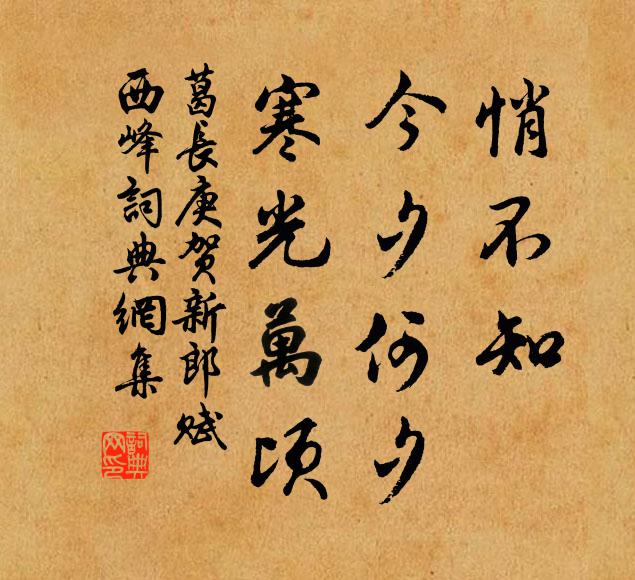 悄不知
今夕何夕
寒光萬頃
葛長庚賀新郎賦
西峰詞典網集
詞典
网印